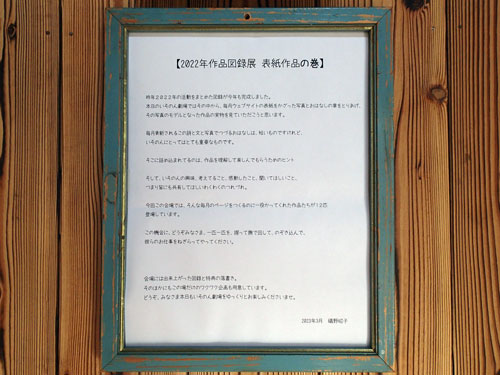 【2022年作品図録展 表紙作品の巻】
昨年２０２２年の活動をまとめた図録が今年も完成しました。
本日のいろのん劇場ではその中から、毎月ウェブサイトの表紙をかざった写真とおはなしの章をとりあげ、
その写真のモデルとなった作品の実物を見ていただこうと思います。
毎月更新されるこの詩と文と写真でつづるおはなしは、短いものですけれど、
いろのんにとってはとても重要なものです。
そこに詰め込まれてるのは、作品を理解して楽しんでもらうためのヒント
そして、いろのんの興味、考えてること、感動したこと、聞いてほしいこと、
つまり皆にも共有してほしいわくわくのつれづれ。
今回この会場では、そんな毎月のページをつくるのに一役かってくれた作品たちが１２匹
登場しています。
この機会に、どうぞみなさま、一匹一匹を、撮って撫で回して、のぞき込んで、
彼らのお仕事をねぎらってやってください。
会場には出来上がった図録と特典の落書き。
そのほかにもこの場だけのワクワク企画も用意しています。
どうぞ、みなさま本日もいろのん劇場をゆっくりとお楽しみくださいませ。
2023年3月　磯野昭子